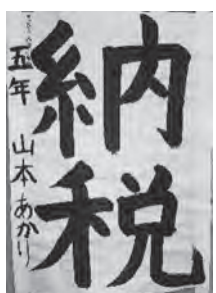 納税
五年 山本あかり